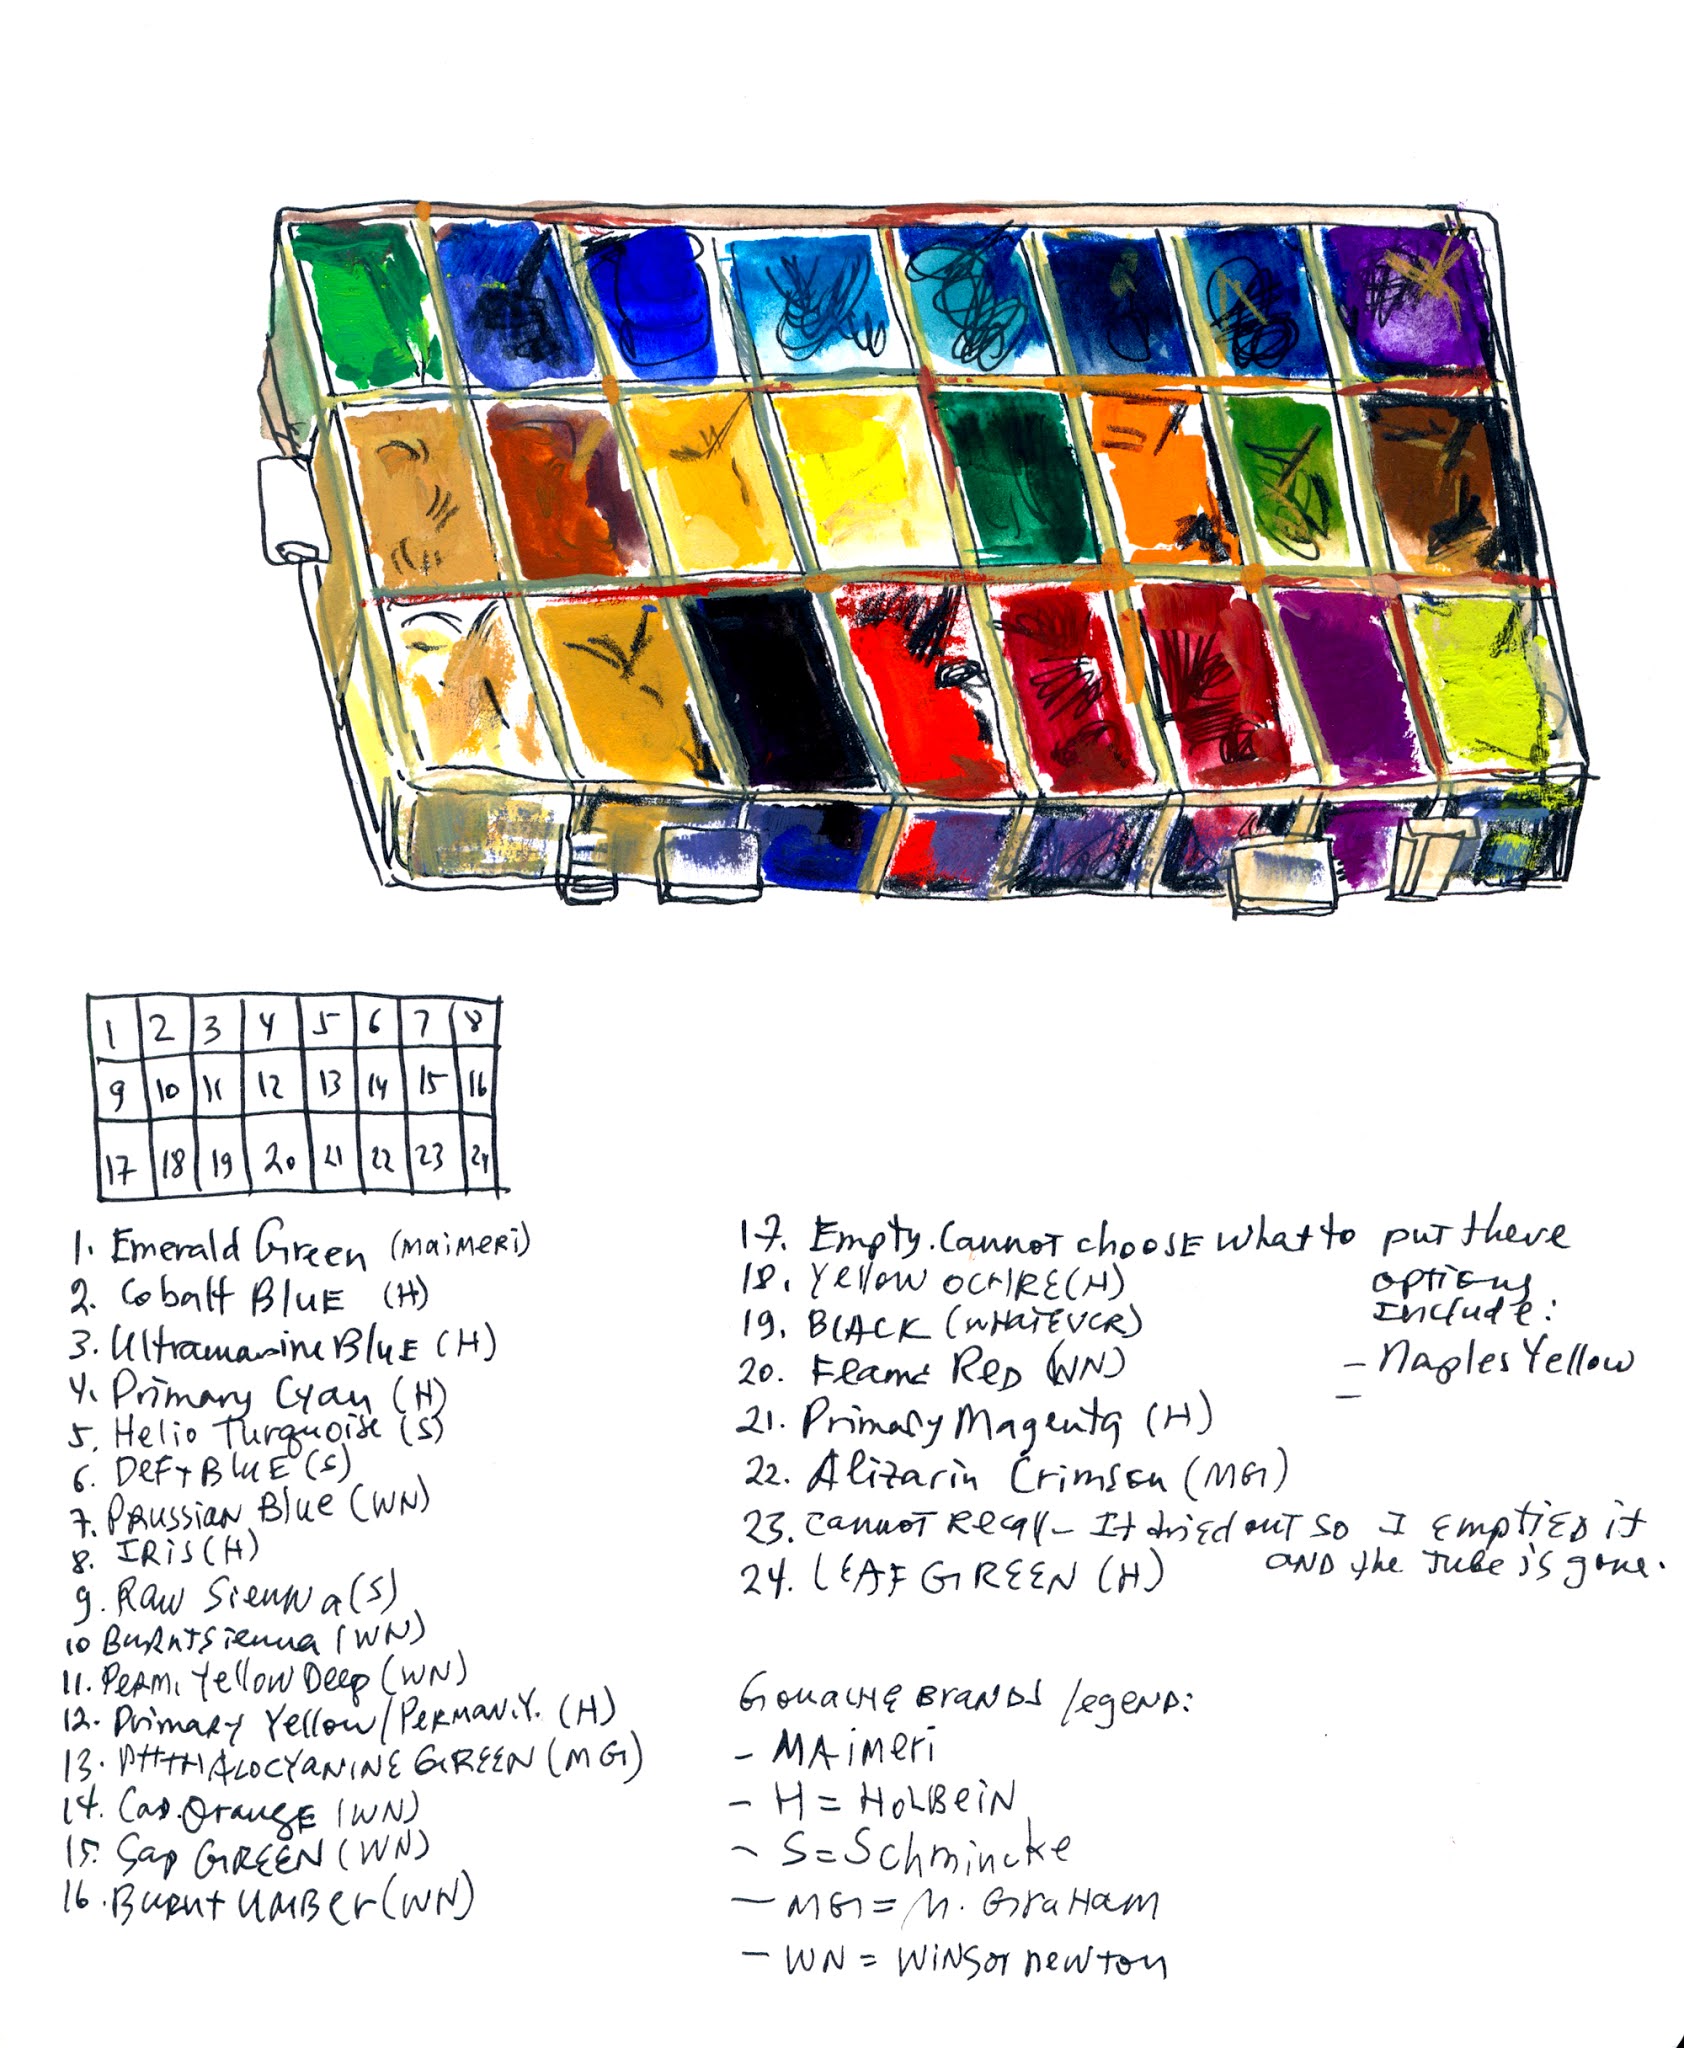 1 2 3 4 5 6 7 8
9 10 11 12 13 14 15 16
17 18 19 20 21 22 23 24
1. Emerald Green (MAiMERi)
2. Cobalt BLUE (H)
3. Ultramarine BLUE (H)
4. Primary Cyan (H)
5. Helio Turquoise (S)
6. DeFt BLUE (S)
7. PRussian Blue (WN)
8. IRiS (H)
9. RAW Sienna (S)
10 BURNt Sienna (WN)
11. PERM. Yellow Deep (WN)
12. Primary Yellow/PERMAN.Y. (H)
13. PHTHALOCYANINE GREEN (MG)
14. CAD. OrangE (WN)
15. Sap GREEN (WN)
16. BURNt UMBER (WN)
17. Empty. CANNOT choosE What to put there
options
Include:
- Naples Yellow
-
18. Yellow OCHRE (H)
19. BLACK (WHATEVER)
20. FLAME RED (WN)
21. Primary Magenta (H)
22. Alizarin Crimson (MG)
23. CANNOT RECALL - It dried out so I EMPTIED it
AND the tube is gone.
24. LEAF GREEN (H)
GOUACHE BRANDS legEND:
- MAiMERi
- H = HOLBEiN
- S = Schmincke
- MG = M. GRAHAM
- WN = WiNSOR NEWTON